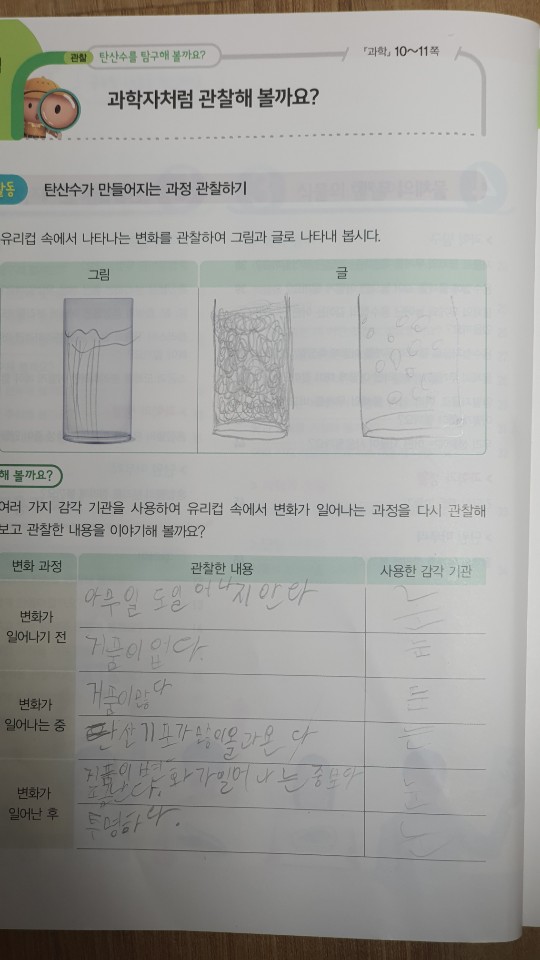 관찰 탄산수를 탐구해 볼까요?
『과학』 10~11쪽
과학자처럼 관찰해 볼까요?
탄산수가 만들어지는 과정 관찰하기
유리컵 속에서 나타나는 변화를 관찰하여 그림과 글로 나타내 봅시다.
그림 글
해 볼까요?
여러 가지 감각 기관을 사용하여 유리컵 속에서 변화가 일어나는 과정을 다시 관찰해
보고 관찰한 내용을 이야기해 볼까요?
변화 과정 관찰한 내용 사용한 감각 기관
변화가
일어나기 전
아무 일 도 일 어 나 지 안 아
눈
거품이 없다.
눈
변화가
일어나는 중
거품이 많다
눈
탄산 기포가 많이 올라온 다
눈
변화가
일어난 후
변화가 일어 나 는 중 보다
눈
투명하다.
눈